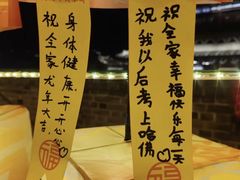 身体健康,开开心心♡
祝全家龙年大吉,
祝全家幸福快乐每一天
祝我以后考上哈佛